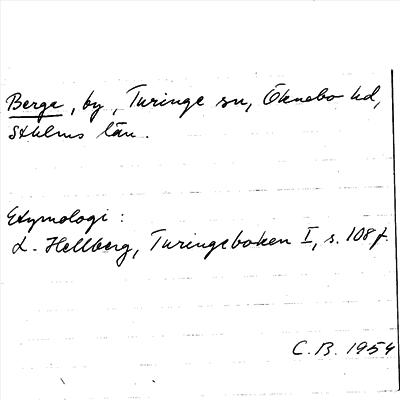 Berga, by, Turinge sn, Öknebo hd,
Sthlms län.
Etymologi:
L. Hellberg, Turingeboken I, s. 108 f.
C.B. 1954